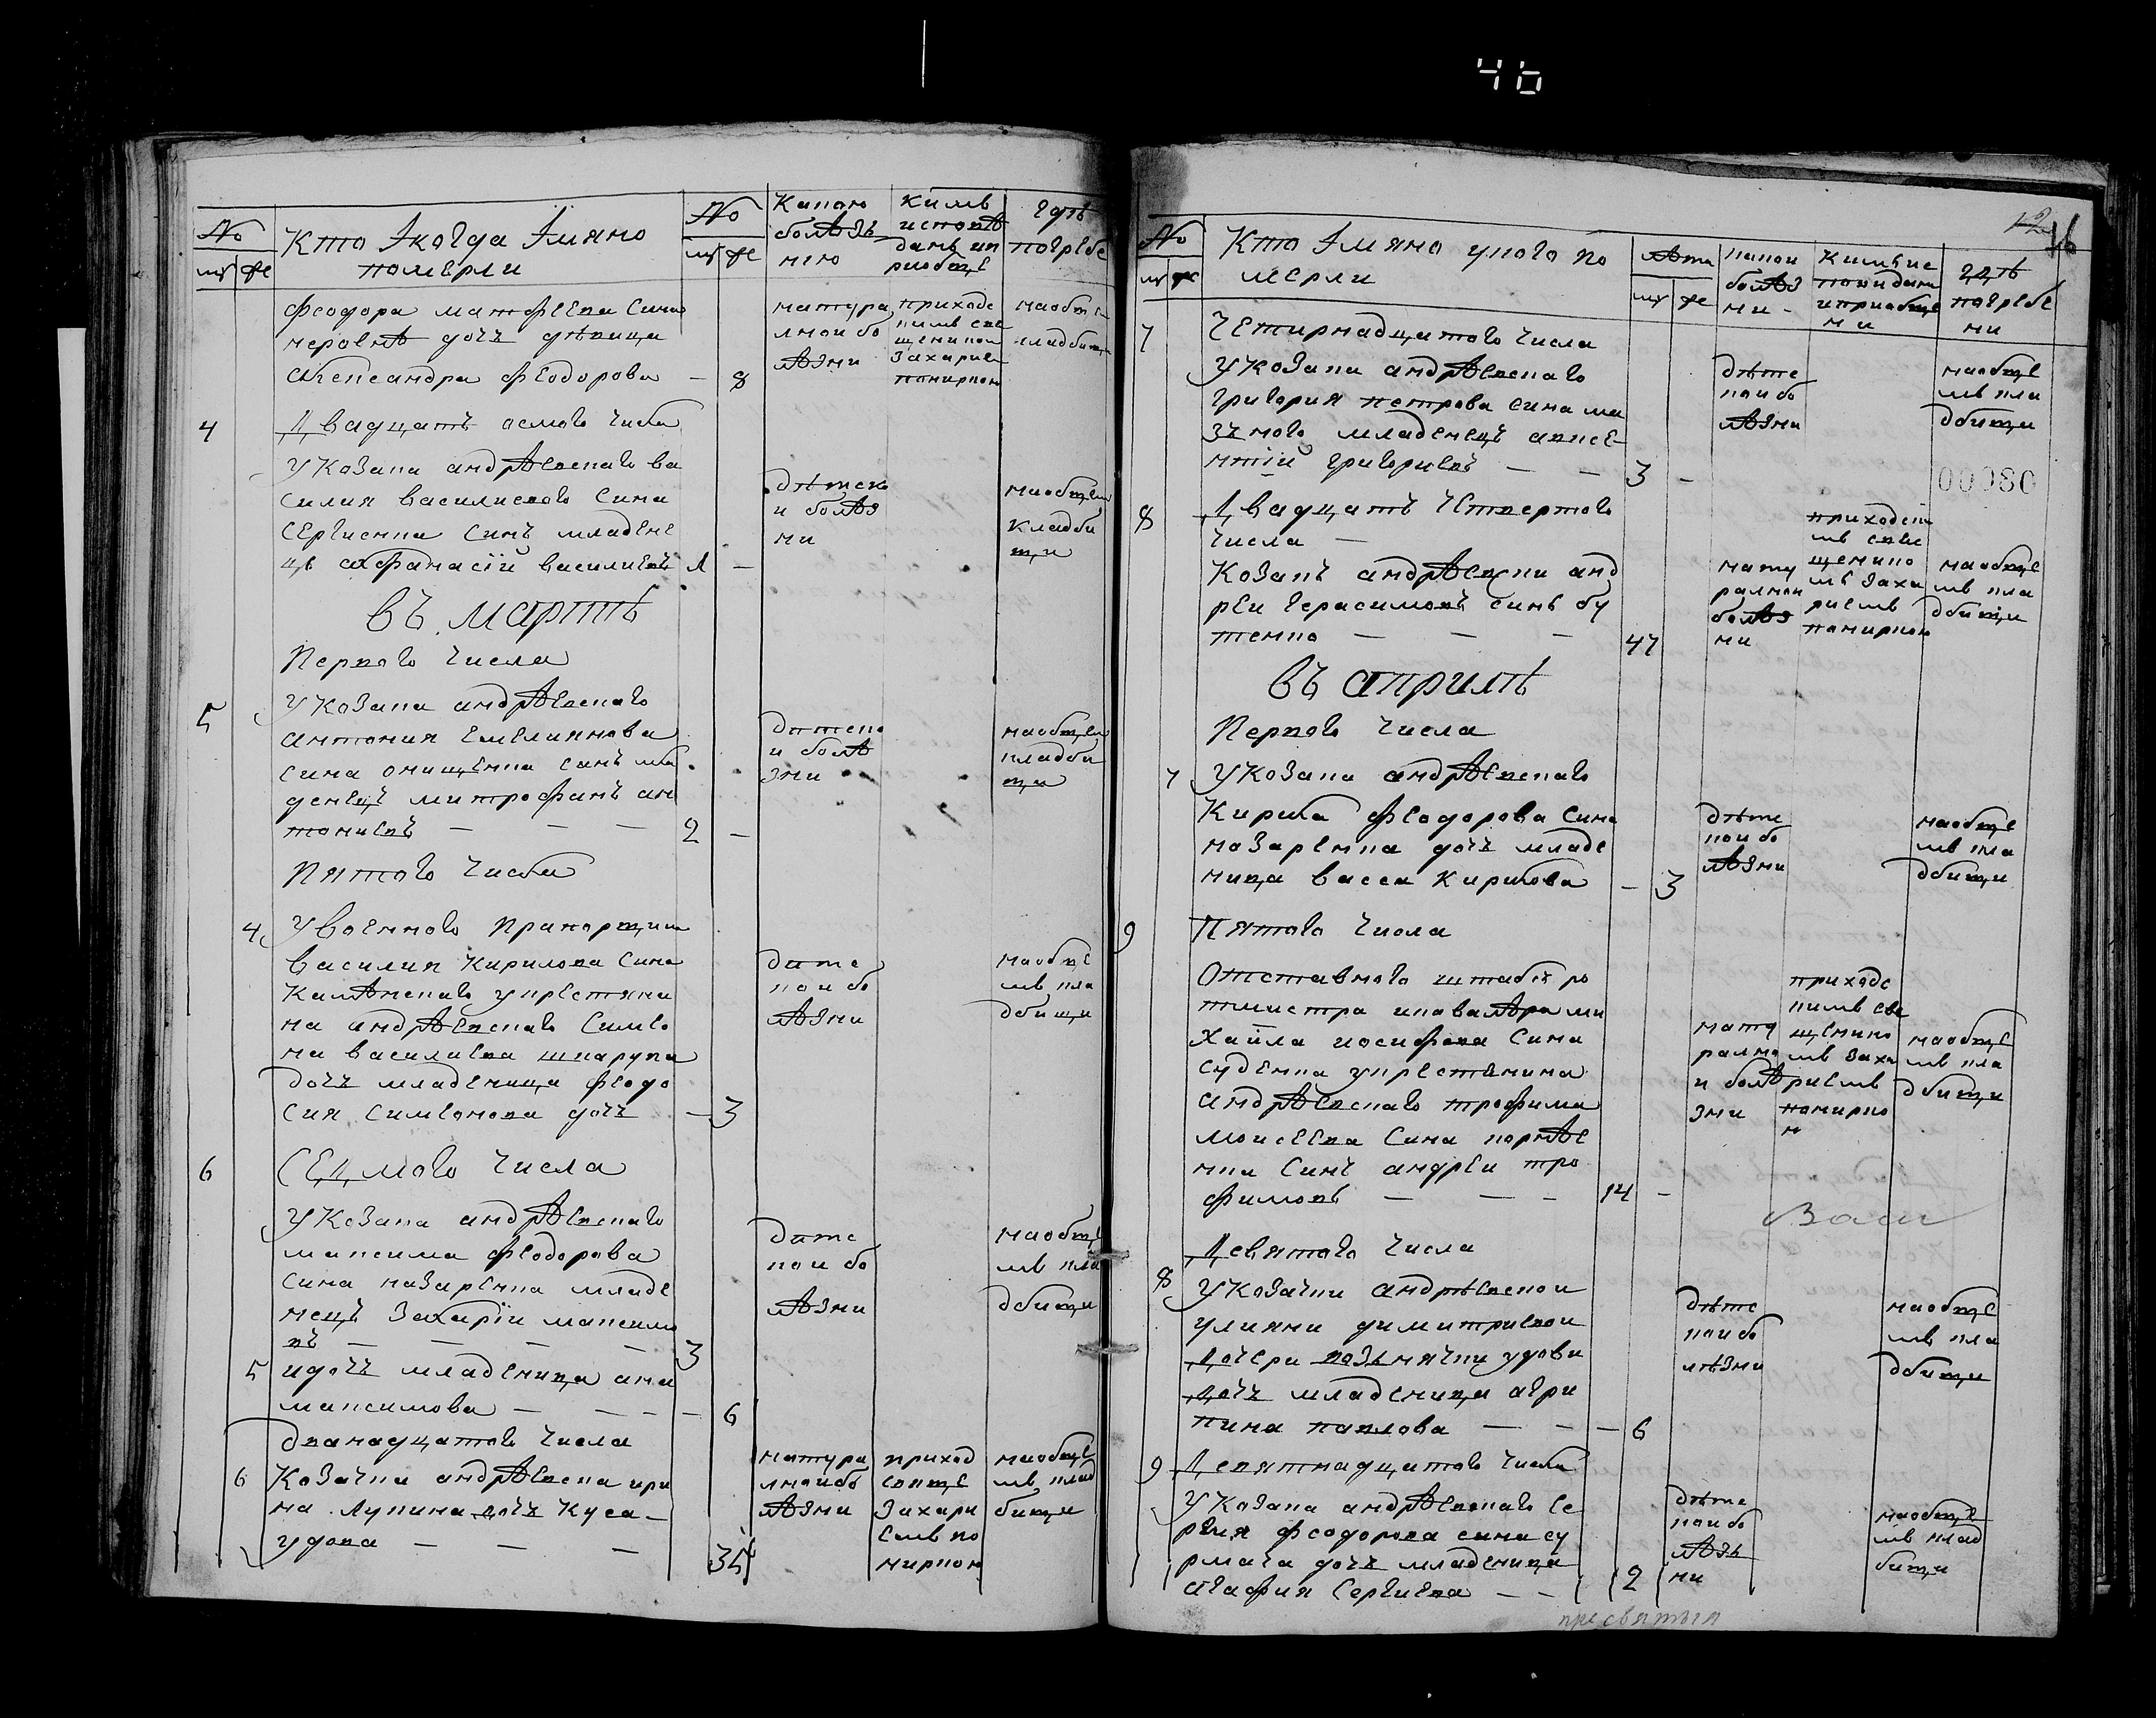 46
№
Кто Ікогда Імяно
помѣрли
№
Какою
болѣзь
нею
Кимъ
исповѣ
данъ ип
риобще
гдѣ
погребе
му же
му же
феодора матфѣева сина
дочь дѣвица
александра феодорова — 8
натура
лнои бо
лѣзни
приходс
кимъ свя
щеникои
Захарие
помирнои
наобще
кладбищи
4
Двадцать осмого числа
У Козака андрѣевскаго ва
силия василиевого сина
Сергиенка синъ младене
цъ афанасій василиевъ 1 —
дѣтско
и болѣз
ни
наобщем
кладби
щи
въ мартѣ
Первого числа
5
У Козака андрѣевскаго
антония Емелиянова
сина онищенка синъ мла
денецъ митрофанъ ан
тониевъ — — — 2 —
дитско
и болѣ
зни
наобщем
кладби
щи
Пятого числа
4
У военного Прапорщика
василия Кирилова сина
Камѣнскаго укрестяни
на андрѣевскаго Симео
на василиева шкарупи
дочь младеница феодо
сия Симеонова дочь — 3
дитс
кои бо
лѣзни
наобще
мъ кла
дбищи
6
СЕдмого числа
У Козака андрѣевскаго
максима феодорова
сина назаренка младе
нецъ Захарій максимо
въ — — — — 3
дитс
кои бо
лѣзни
наобще
мъ кла
дбищи
5
идочь младеница анна
максимова — — — — 6
дванадцатого числа
6
Козачка андрѣевска ири
на Лукина дочь Куса —
удова — — — 35
натура
лнои бо
лѣзни
приход
свяще
Захари
емъ по
мирнои
наобще
мъ клад
бищи
12
46
№
Кто Імяно укого по
мерли
лѣта
какои
болѣз
ни —
Кимъ ис
повидани
иприобще
ни
гдѣ
погребе
ни
му же
му же
7
Четирнадцатого числа
У Козака андрѣевскаго
григория петрова сина ма
зъного младенецъ авксе
нтій григориевъ — — 3 —
дѣтс
кои бо
лѣзни
наобще
мъ кла
дбищи
00080
8
Двадцать четвертого
числа —
Козакъ андрѣевски анд
реи герасимовъ синъ бу
тенко — — — 47
нату
ралнои
болѣз
ни
приходски
мъ свяс
щенико
мъ Заха
риемъ
помирнои
наобще
мъ кла
дбищи
въ априлѣ
Первого числа
7
У Козака андрѣевскаго
Кирила феодорова сина
назаренка дочь младе
ница васса Кирилова — 3
дѣтс
кои бо
лѣзни
наобще
мъ кла
дбищи
9
Пятого числа
Отставного штабсъ ро
тмистра икавалѣра ми
хаила иосифова сина
судѣнка укрестянина
андрѣевскаго трофима
моисеева сина корнѣе
нка синъ андреи тро
фимовъ — — — 14 —
нату
рално
и болѣ
зни
приходс
кимъ свя
щенико
мъ Заха
риемъ
помирно
и
наобще
мъ кла
дбищи
Девятого числа
8
У Козачки андрѣевскои
улияни димитриевои
дочери возънячки удови
дочь младеница агри
пина павлова — — — 6
дѣтс
кои бо
лѣзни
наобще
мъ кла
дбищи
9
Девятнадцатого числа
У Козака андрѣевскаго се
ргия феодорова сина су
рмача дочь младеница
агафия Сергиева — — 2
дѣтс
кои бо
лѣзь
ни
наобще
мъ клад
бищи
пресвятыя